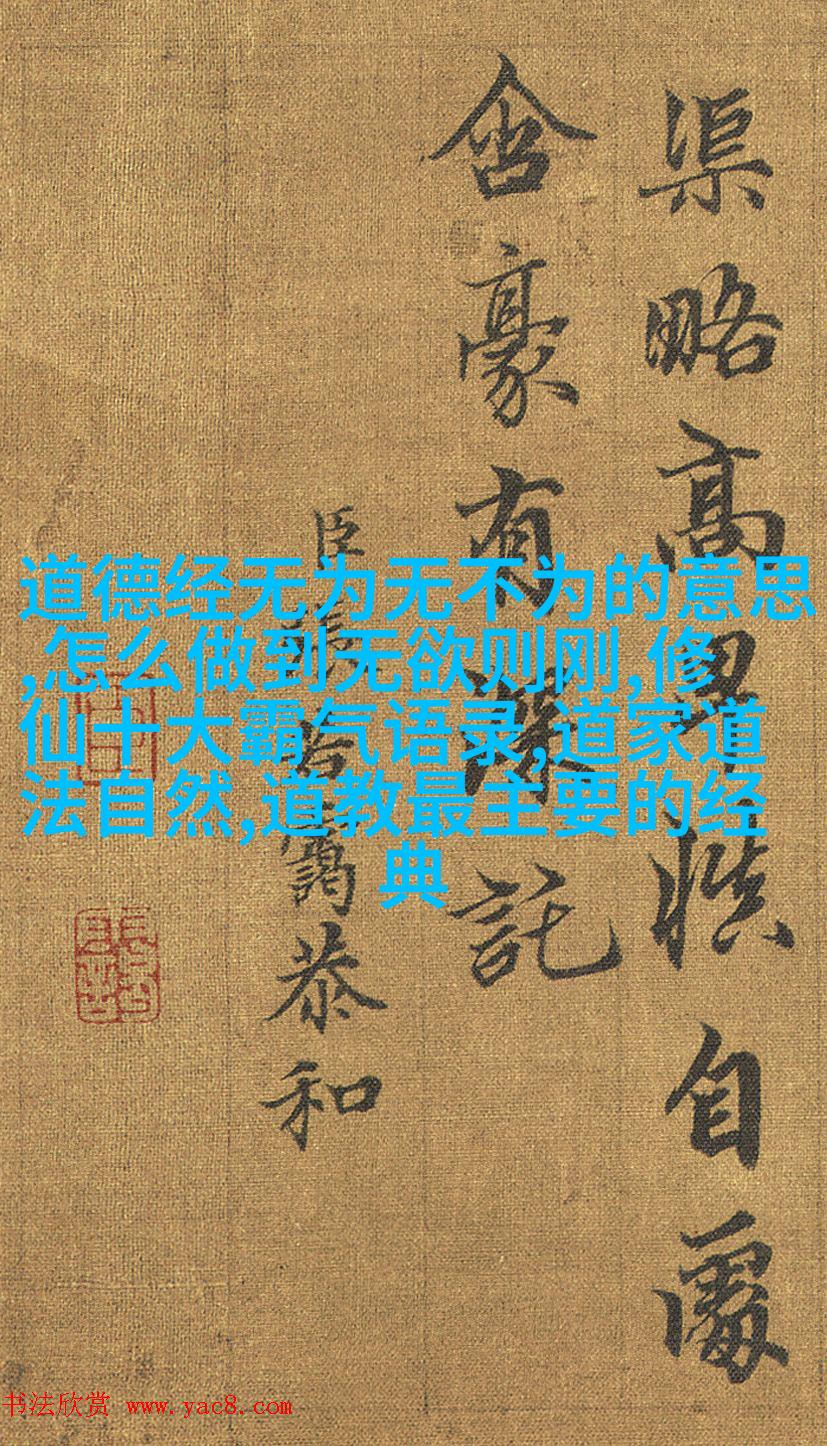 渠略高慎自
含豪有深託
臣張若靄恭和
道德经无为无不为的意思
,怎么做到无欲则刚,修
仙十大霸气语录,道家道
法自然,道教最主要的经
典
书法欣赏 www.yac8.com